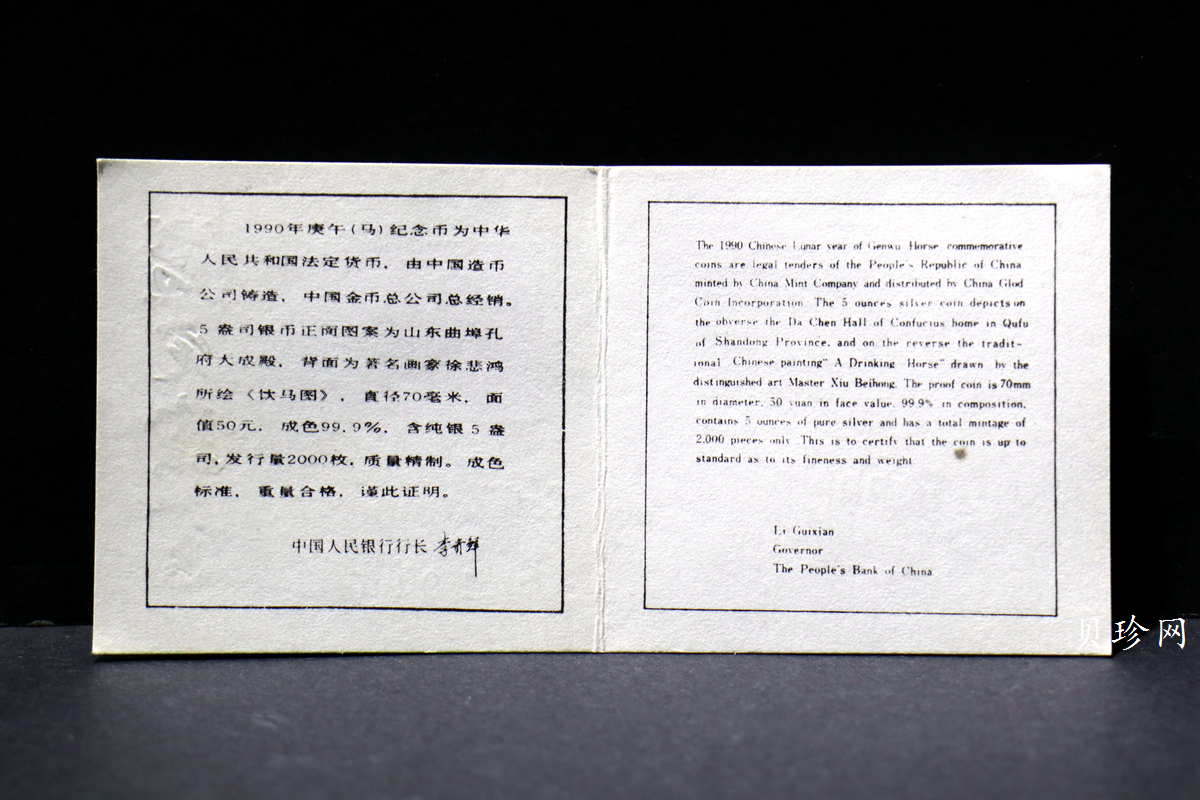 1990年庚午(马)纪念币为中华
人民共和国法定货币，由中国造币
公司铸造，中国金币总公司总经销。
5盎司银币正面图案为山东曲埠孔
府大成殿，背面为著名画家徐悲鸿
所绘《饮马图》，直径70毫米，面
值50元，成色99.9%，含纯银5盎
司，发行量2000枚，质量精制。成色
标准，重量合格，谨此证明。
中国人民银行行长 李贵鲜
The 1990 Chinese Lunar year of Genwu Horse commemorative
coins are legal tenders of the People's Republic of China
minted by China Mint Company and distributed by China Glod
Coin Incorporation. The 5 ounces silver coin depicts on
the obverse the Da Chen Hall of Confucius home in Qufu
of Shandong Province, and on the reverse the tradit-
ional Chinese painting" A Drinking Horse" drawn by the
distinguished art Master Xiu Beihong. The proof coin is 70mm
in diameter, 50 yuan in face value, 99.9% in composition,
contains 5 ounces of pure silver and has a total mintage of
2,000 pieces only. This is to certify that the coin is up to
standard as to its fineness and weight.
Li Guixian
Governor
The People's Bank of China
贝珍网